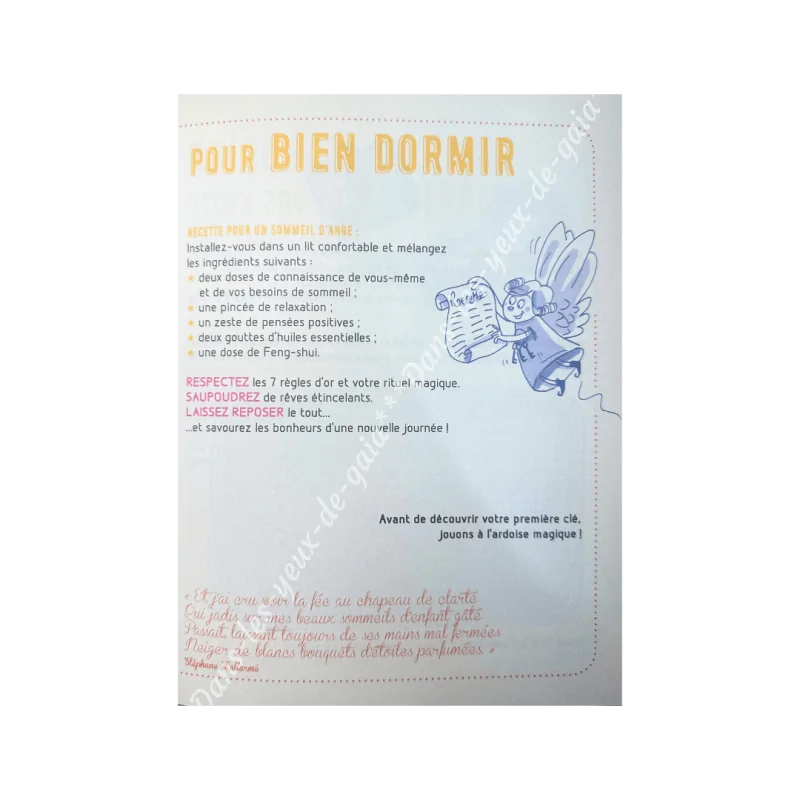 POUR BIEN DORMIR
RECETTE POUR UN SOMMEIL D'ANGE :
Installez-vous dans un lit confortable et mélangez
les ingrédients suivants :
★ deux doses de connaissance de vous-même
et de vos besoins de sommeil ;
★ une pincée de relaxation ;
★ un zeste de pensées positives ;
★ deux gouttes d'huiles essentielles ;
★ une dose de Feng-shui.
Recette
RESPECTEZ les 7 règles d'or et votre rituel magique.
SAUPOUDREZ de rêves étincelants.
LAISSEZ REPOSER le tout...
...et savourez les bonheurs d'une nouvelle journée !
Avant de découvrir votre première clé,
jouons à l'ardoise magique !
« Et j'ai cru voir la fée au chapeau de clarté
Qui jadis sur mes beaux sommeils d'enfant gâté
Passait, laissant toujours de ses mains mal fermées
Neiger de blancs bouquets d'étoiles parfumées. »
Stéphane Mallarmé
Dans-les-yeux-de-gaia
Dans-les-yeux-de-gaia